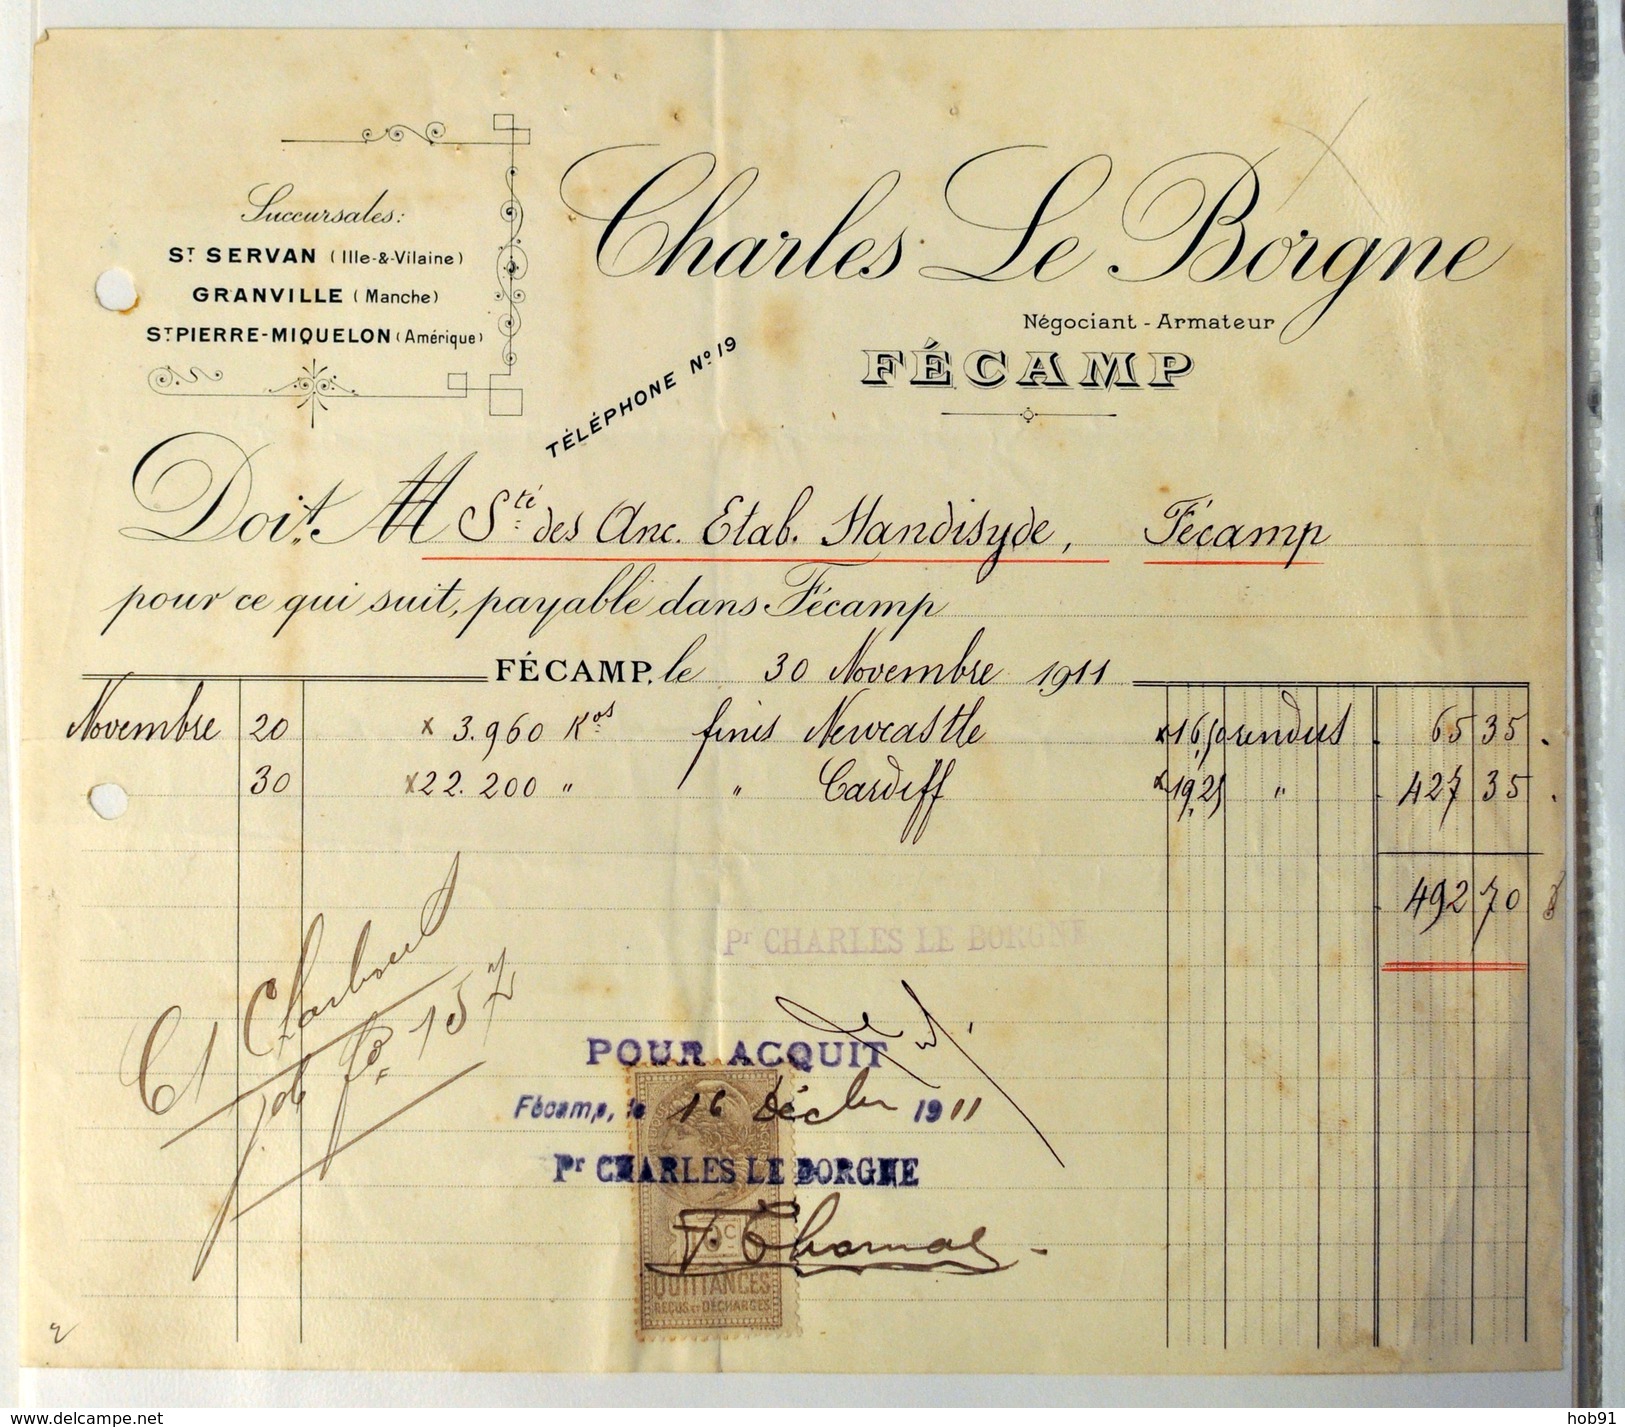 Succursales:
ST SERVAN (Ille-&-Vilaine)
GRANVILLE (Manche)
ST PIERRE-MIQUELON (Amérique)
Charles Le Borgne
Négociant - Armateur
FÉCAMP
TÉLÉPHONE No 19
Doit M Sté des Anc. Etab. Handisyde, Fécamp
pour ce qui suit, payable dans Fécamp
FÉCAMP, le 30 Novembre 1911
Novembre 20 x 3.960 Kos fines Newcastle x 16,50 rendus 65 35
30 x 22.200 " " Cardiff x 19,25 " 427 35
492 70
Pr CHARLES LE BORGNE
Ct Charbons
fo 157
POUR ACQUIT
Fécamp, le 16 Décbr 1911
Pr CHARLES LE BORGNE
QUITTANCES
REÇUS ET DÉCHARGES
www.delcampe.net
hob91